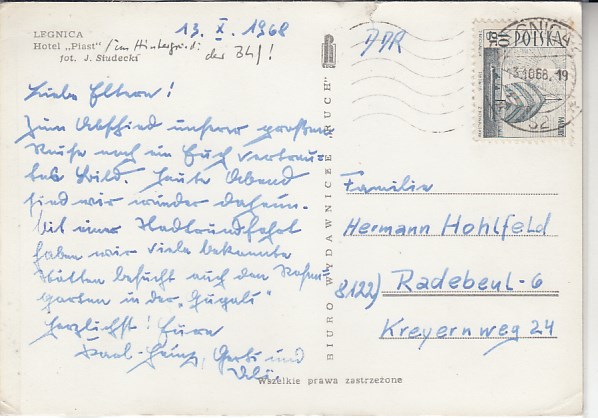 LEGNICA
Hotel „Piast" /im Hintergrund:
fot. J. Siudecki der Bhf!
13. X. 1968
DDR
POLSKA
13.10.68.19
Liebe Eltern!
Zum Abschied unserer großen
Reise noch ein Euch vertrau-
tes Bild. Heute Abend
sind wir wieder daheim.
Mit einer Stadtrundfahrt
haben wir viele bekannte
Stätten besucht auch den
garten in der
Herzlichst! Eure
Karl-Heinz, Gerti und
BIURO WYDAWNICZE „RUCH"
Familie
Hermann Hohlfeld
8122) Radebeul-6
Kreyernweg 24
Wszelkie prawa zastrzeżone